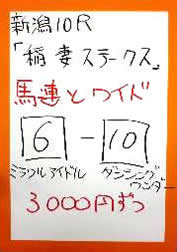 新潟10R
「稲妻ステークス」
馬連とワイド
6 - 10
ミラクルアイドル ダンシングワンダー
3000円ずつ